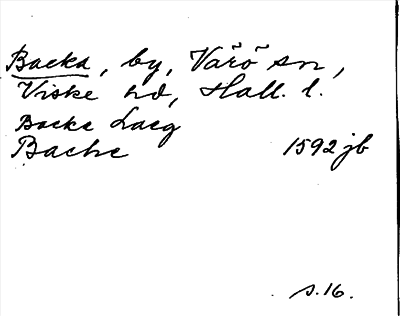 Backa, by, Värö sn,
Viske hd, Hall. l.
Backe Laeg
Backe 1592 jb
s. 16.